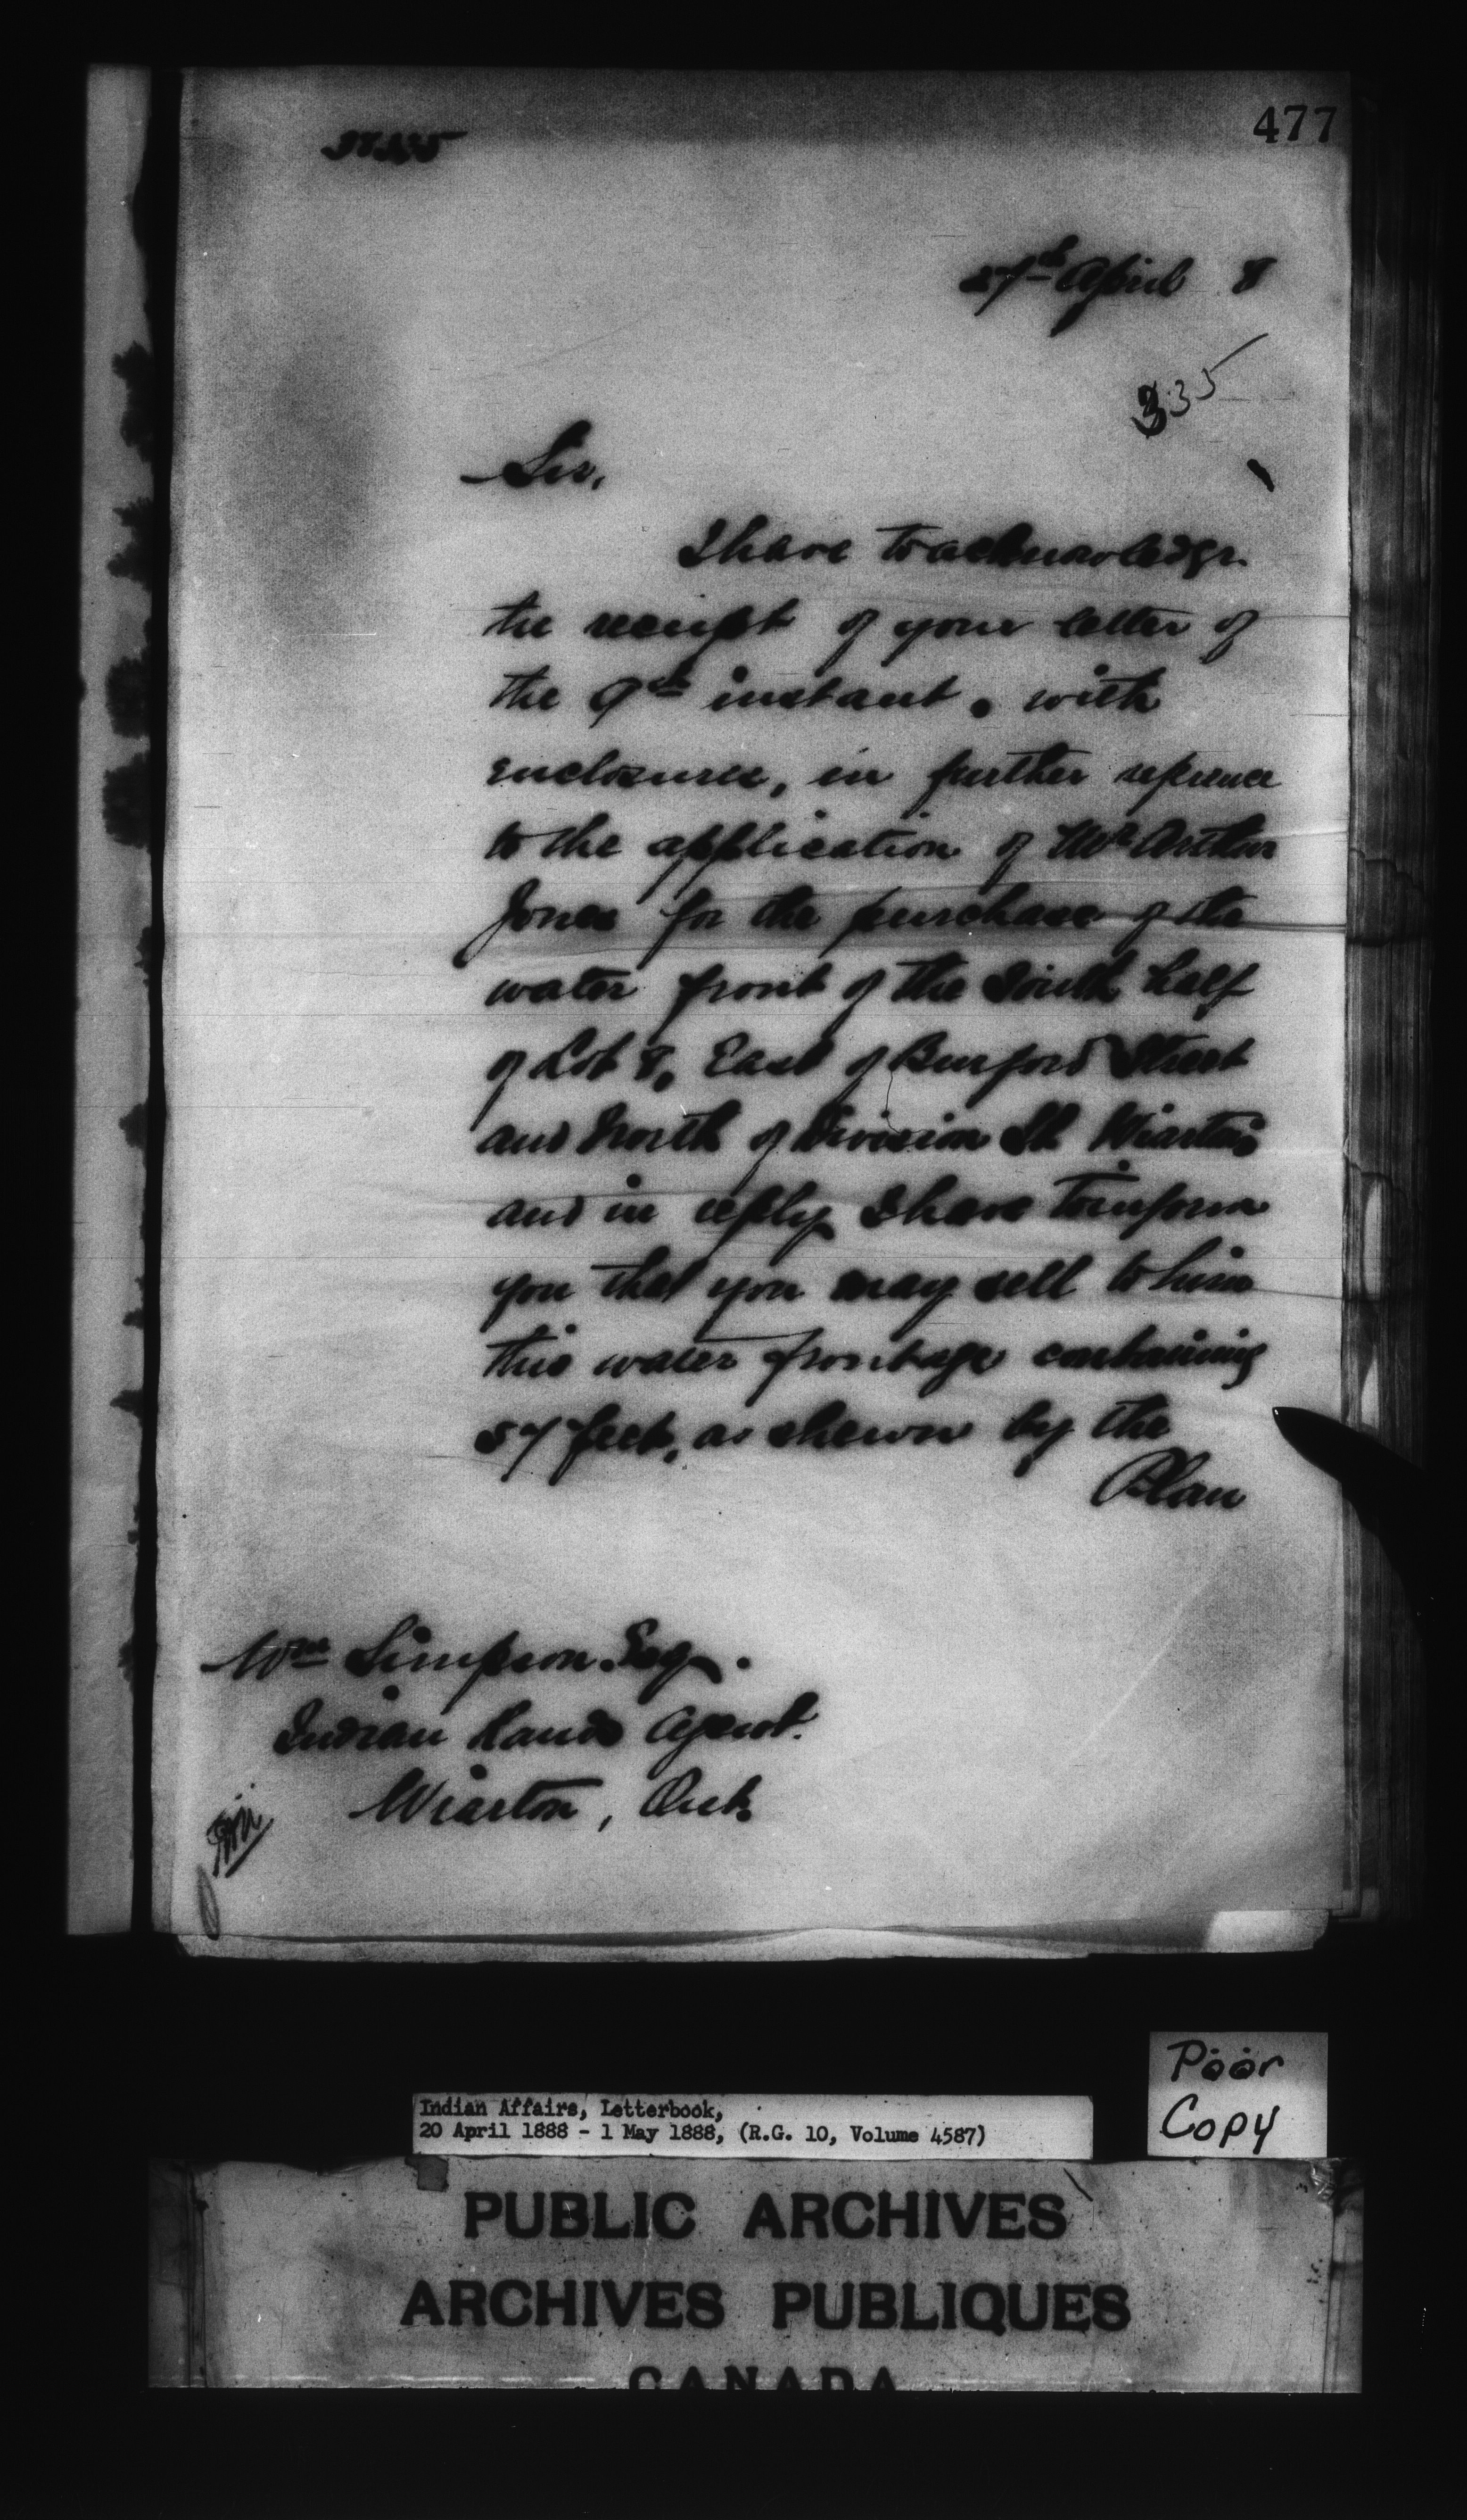 477
27th April 8
335
Sir,
I have to acknowledge
the receipt of your letter of
the 9th instant, with
enclosures, in further reference
to the application of Mr Arthur
Jones for the purchase of the
water front of the South half
of Lot 8, East of Burford Street
and North of Division St Wiarton
and in reply I have to inform
you that you may sell to him
this water frontage containing
57 feet, as shewn by the
Plan
Wm Simpson Esq.
Indian Lands Agent.
Wiarton, Ont.
Poor
Copy
Indian Affairs, Letterbook,
20 April 1888 - 1 May 1888, (R.G. 10, Volume 4587)
PUBLIC ARCHIVES
ARCHIVES PUBLIQUES
CANADA